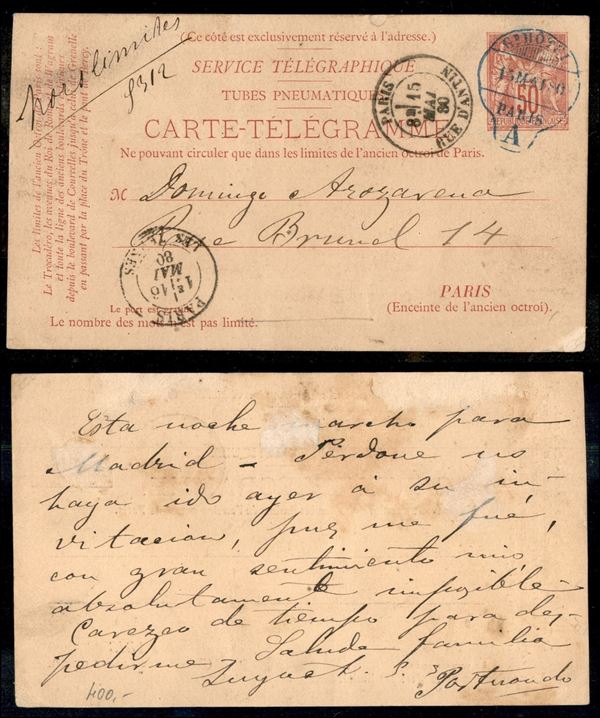 hors limites
8312
(Ce côté est exclusivement réservé à l'adresse.)
SERVICE TÉLÉGRAPHIQUE
TUBES PNEUMATIQUES
CARTE-TÉLÉGRAMME
Ne pouvant circuler que dans les limites de l'ancien octroi de Paris.
PARIS
8 15
MAI
80
RUE D'ANTIN
15 MAI 80
PARIS
A
50
M Domingo Arozarena
Rue Brunel 14
PARIS
(Enceinte de l'ancien octroi).
PARIS
16
MAI
80
LES TERNES
Le port est gratuit
Le nombre des mots n'est pas limité.
Le Trocadéro, les avenues du Roi de Rome
et toute la ligne des anciens boulevards
depuis le boulevard de Courcelles jusqu'à celui de Grenelle
en passant par la place du Trône et le pont de Bercy.
Esta noche marcho para
Madrid - Perdone no
haya ido ayer á su in-
vitacion, pues me fué,
con gran sentimiento mio,
absolutamente imposible.
Carezco de tiempo para des-
pedirme Saluda familia
S. Portuondo
400,-